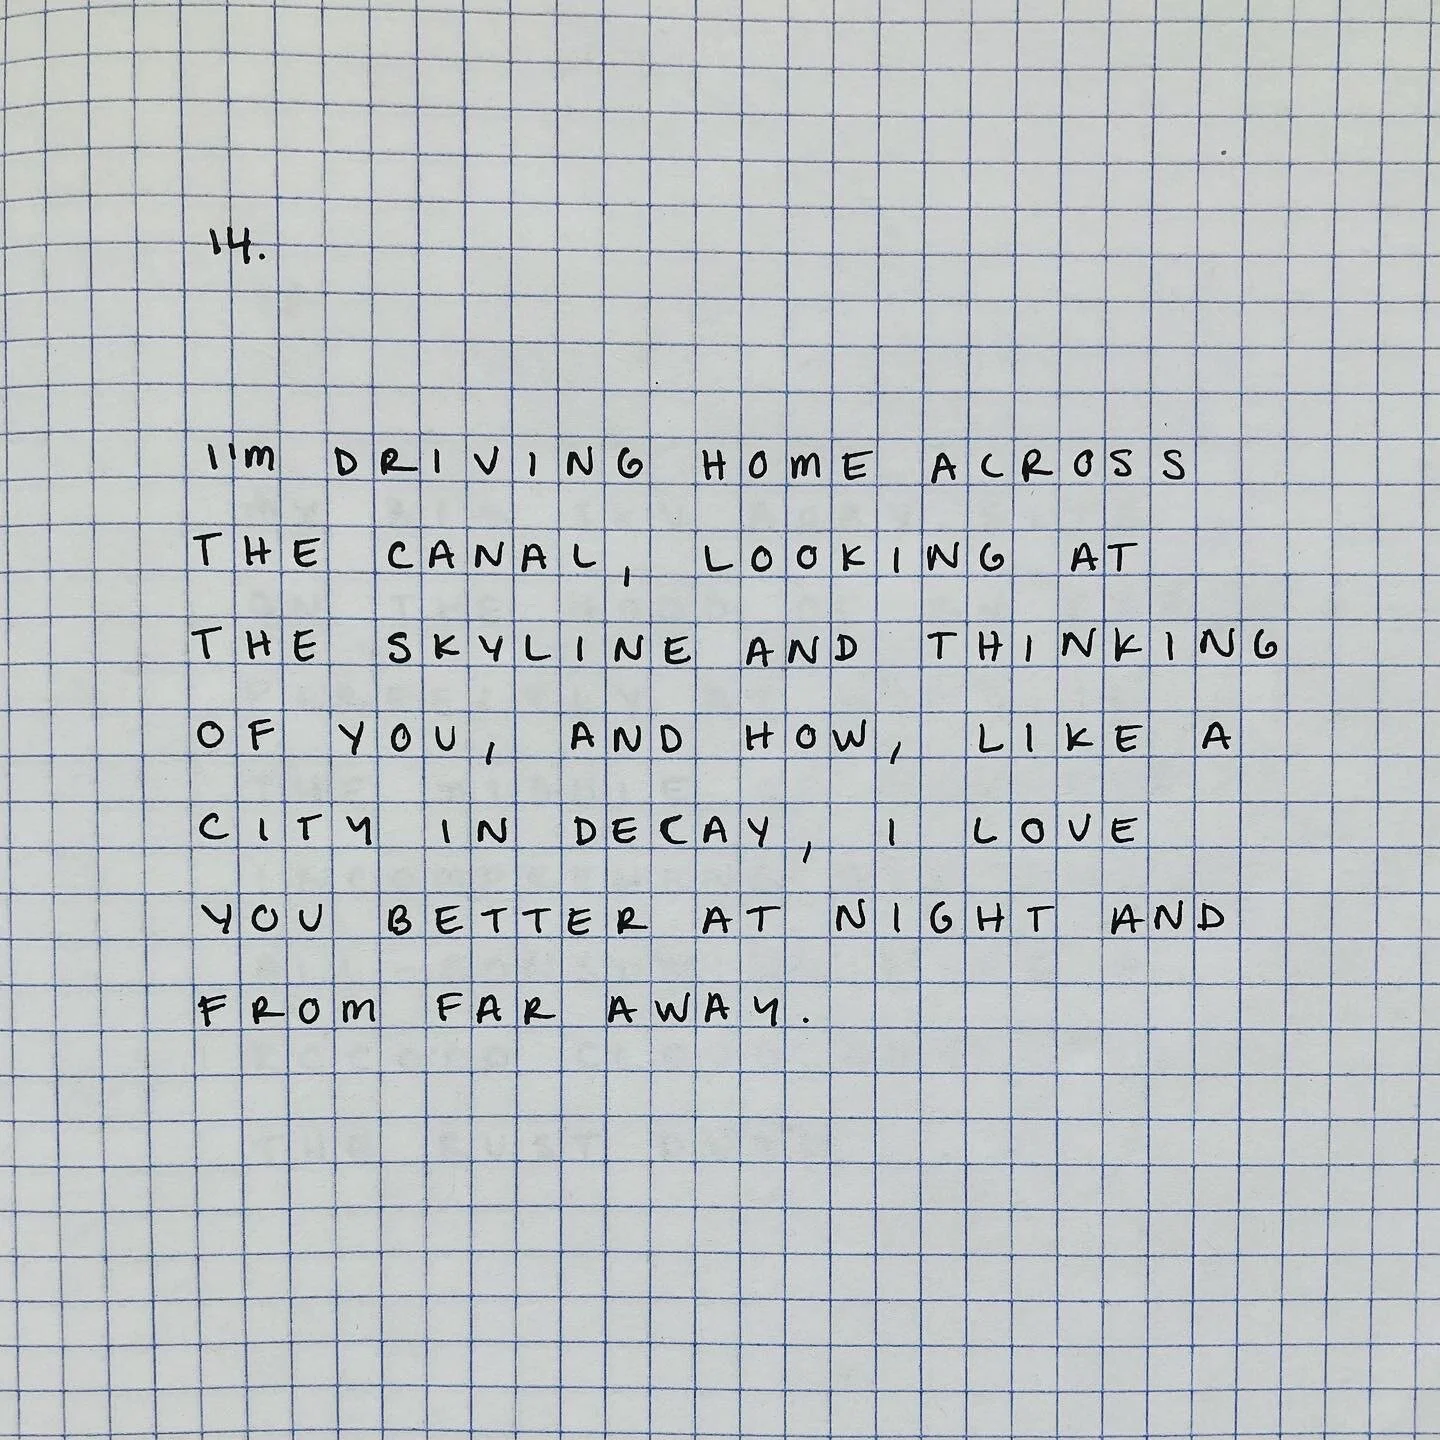 14.
I'm DRIVING HOME ACROSS
THE CANAL, LOOKING AT
THE SKYLINE AND THINKING
OF YOU, AND HOW, LIKE A
CITY IN DECAY, I LOVE
YOU BETTER AT NIGHT AND
FROM FAR AWAY.